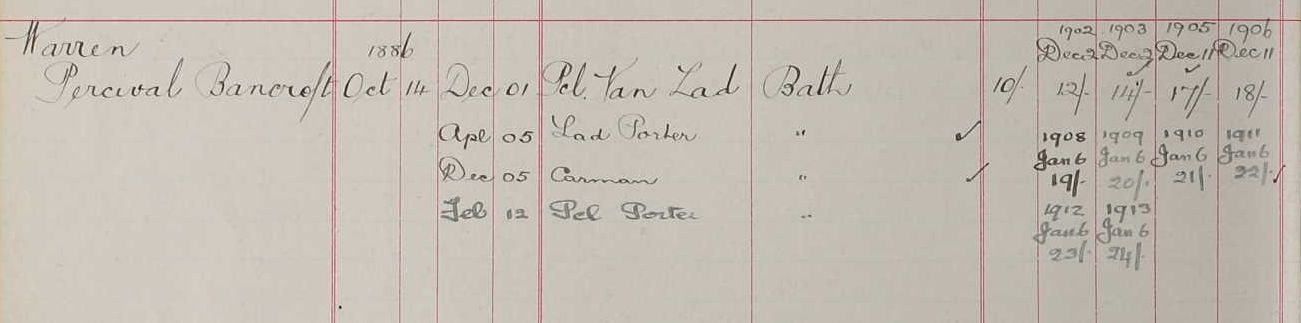 1902 1903 1905 1906
Warren 1886 Dec 2 Dec 2 Dec 11 Dec 11
Percival Bancroft Oct 14 Dec 01 Pcl. Van Lad Bath 10/- 12/- 14/- 17/- 18/-
Apl 05 Lad Porter " ✓ 1908 1909 1910 1911
Jan 6 Jan 6 Jan 6 Jan 6
Dec 05 Carman " ✓ 19/- 20/- 21/- 22/-
Feb 12 Pcl Porter " 1912 1913
Jan 6 Jan 6
23/- 24/-